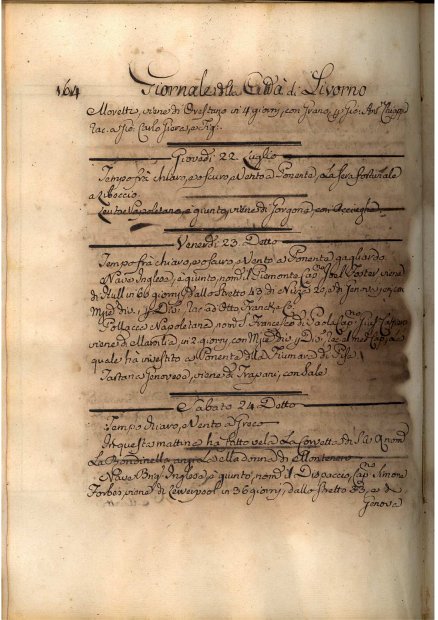 164 Giornale della Città di Livorno
Moretti, viene di Orestano in 4 giorni, con Grano, p Gio: Ant.
rac. a Gio: Carlo
Giovedì 22 Luglio
Tempo frà chiaro, e oscuro, e Vento a Ponente, e la sera Ponentale
a Libeccio
Leuto Napoletano, è giunto, viene di Gorgona, con Acciughe
Venerdì 23. Detto
Tempo frà chiaro, e oscuro, e Vento a Ponente gagliardo
Nave Inglese, è giunto, nom. il Piemonte Cap.no Foster viene
di Hull in 66 giorni, Dallo Stretto 43, di Nizza 20, e di Genova 3, con
Mrzie div., p Div., rac. ad Otto Franck, e C.
Pollacca Napoletana, nom. S. Francesco di Paola, Cap.no
viene di Marsilia, in 2 giorni, con Mrzie div., p Div.
quale hà investito a Ponente della Fiumara di Pisa
Tartana Genovese, viene di Trapani, con Sale
Sabato 24 Detto
Tempo chiaro, e Vento a Greco
In questa mattina hà fatto vela La Corvetta di
La Rondinella alla Madonna di Montenero
Nave Inglese, è giunto, nom. il Dispaccio, Cap.no Simone
Forbes, viene di Liverpool in 36 giorni, dallo Stretto 23, e di
Genova